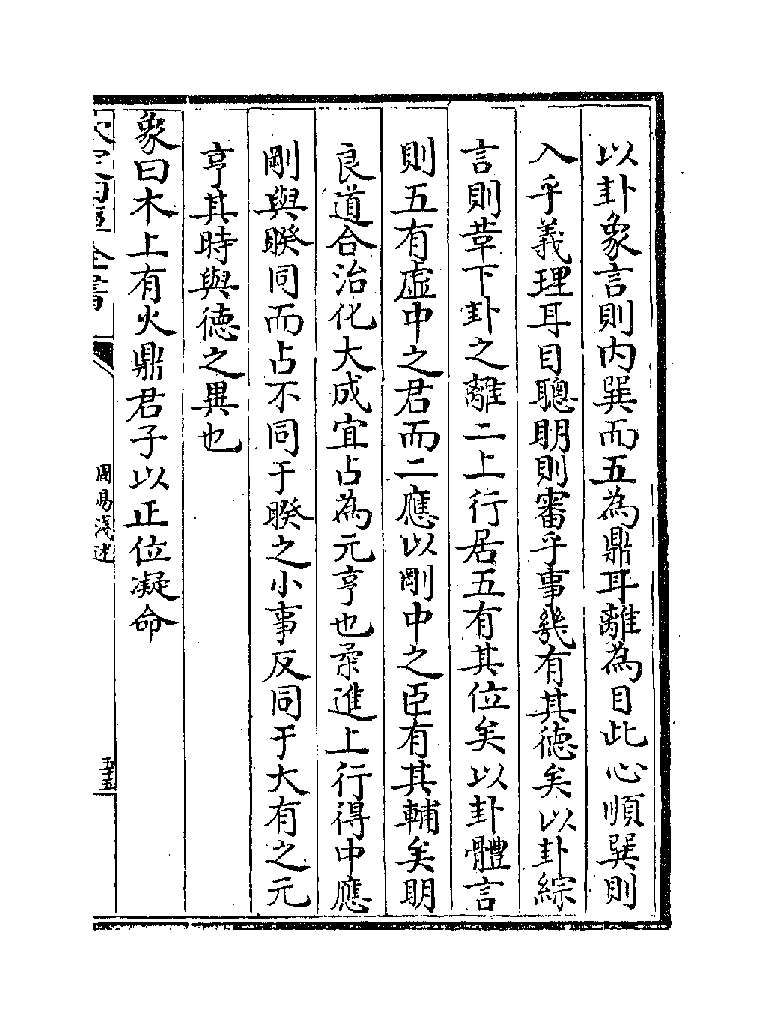 以卦象言則内巽而五為鼎耳離為目此心順巽則
入乎義理耳目聰明則審乎事幾有其德矣以卦綜
言則革下卦之離二上行居五有其位矣以卦體言
則五有虛中之君而二應以剛中之臣有其輔矣明
良道合治化大成宜占為元亨也柔進上行得中應
剛與睽同而占不同于睽之小事反同于大有之元
亨其時與德之異也
象曰木上有火鼎君子以正位凝命
周易淺述
五十五